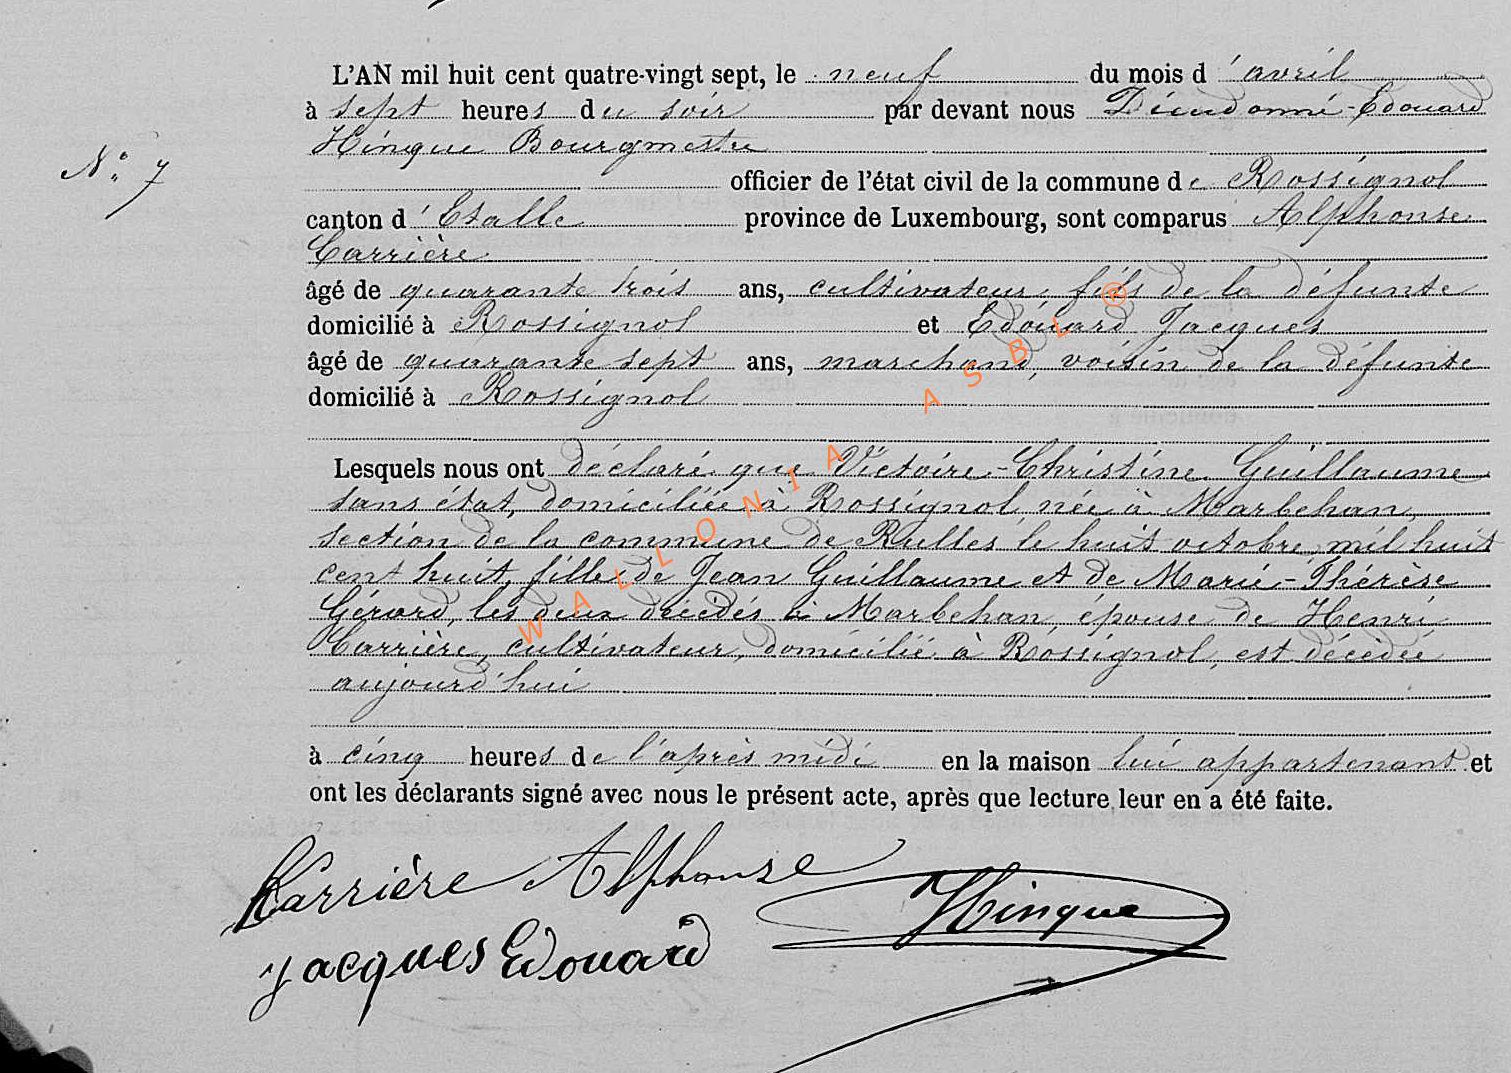 L'AN mil huit cent quatre-vingt sept, le neuf du mois d'avril
à sept heures du soir par devant nous Dieudonné-Edouard
Hinque Bourgmestre
N° 7
officier de l'état civil de la commune de Rossignol
canton d'Etalle province de Luxembourg, sont comparus Alphonse
Carrière
âgé de quarante trois ans, cultivateur, fils de la défunte
domicilié à Rossignol et Edouard Jacques
âgé de quarante sept ans, marchand, voisin de la défunte
domicilié à Rossignol
Lesquels nous ont déclaré que Victoire-Christine Guillaume
sans état, domiciliée à Rossignol, née à Marbehan,
section de la commune de Rulles, le huit octobre mil huit
cent huit, fille de Jean Guillaume et de Marie-Thérèse
Gérard, les deux décédés à Marbehan, épouse de Henri
Carrière, cultivateur, domicilié à Rossignol, est décédée
aujourd'hui
à cinq heures de l'après midi en la maison lui appartenant et
ont les déclarants signé avec nous le présent acte, après que lecture leur en a été faite.
Carrière Alphonse
Hinque
Jacques Edouard
WALLONIA ASBL ®